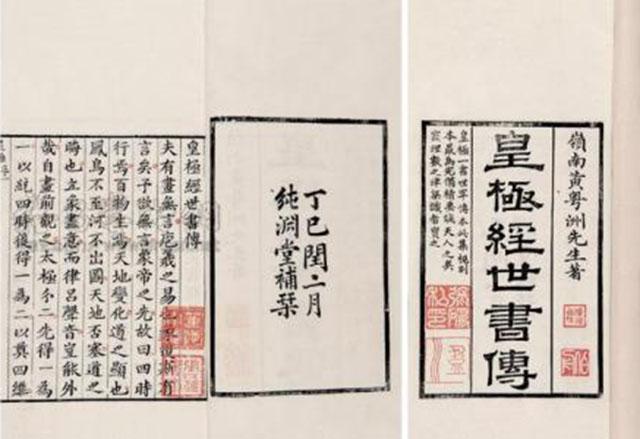 嶺南黃粵洲先生著
皇極經世書傳
皇極一書世罕傳本此集
本最為完備精要誠天人之奧
理數之津梁識者寶之
丁巳閏二月
純淵堂補栞
皇極經世書傳
夫有畫無言庖羲之易也
言矣予欲無言象帝之先故曰四時
行焉百物生焉天地變化道之顯也
鳳鳥不至河不出圖天地否塞道之
晦也立象盡意而律呂聲音豈能外
哉自畫前觀之太極分二先得一為
一以統四時復得一為二以奠四維